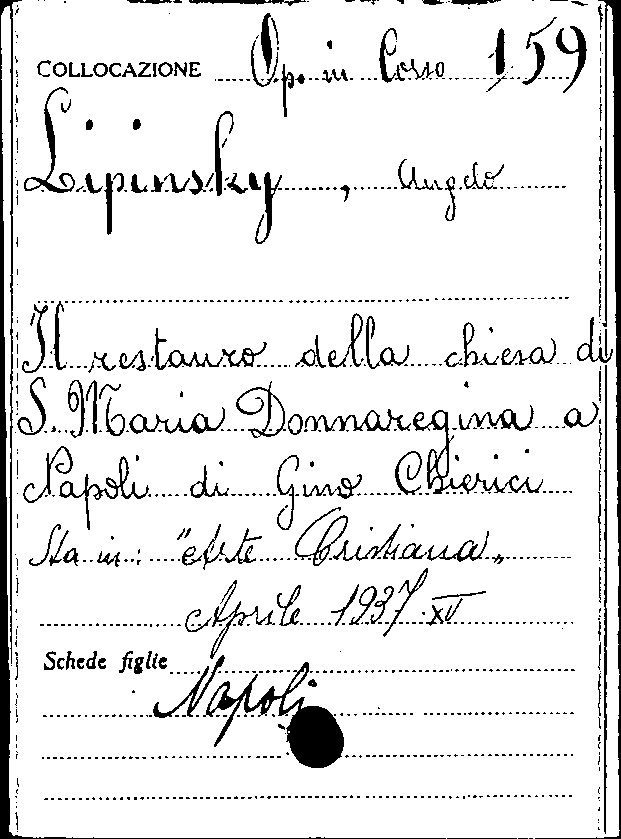 COLLOCAZIONE Op. in Corso 159
Lipinsky, Angelo
Il restauro della chiesa di
S. Maria Donnaregina a
Napoli di Gino Chierici
Sta in: "Arte Cristiana„
Aprile 1937. XV
Schede figlie
Napoli